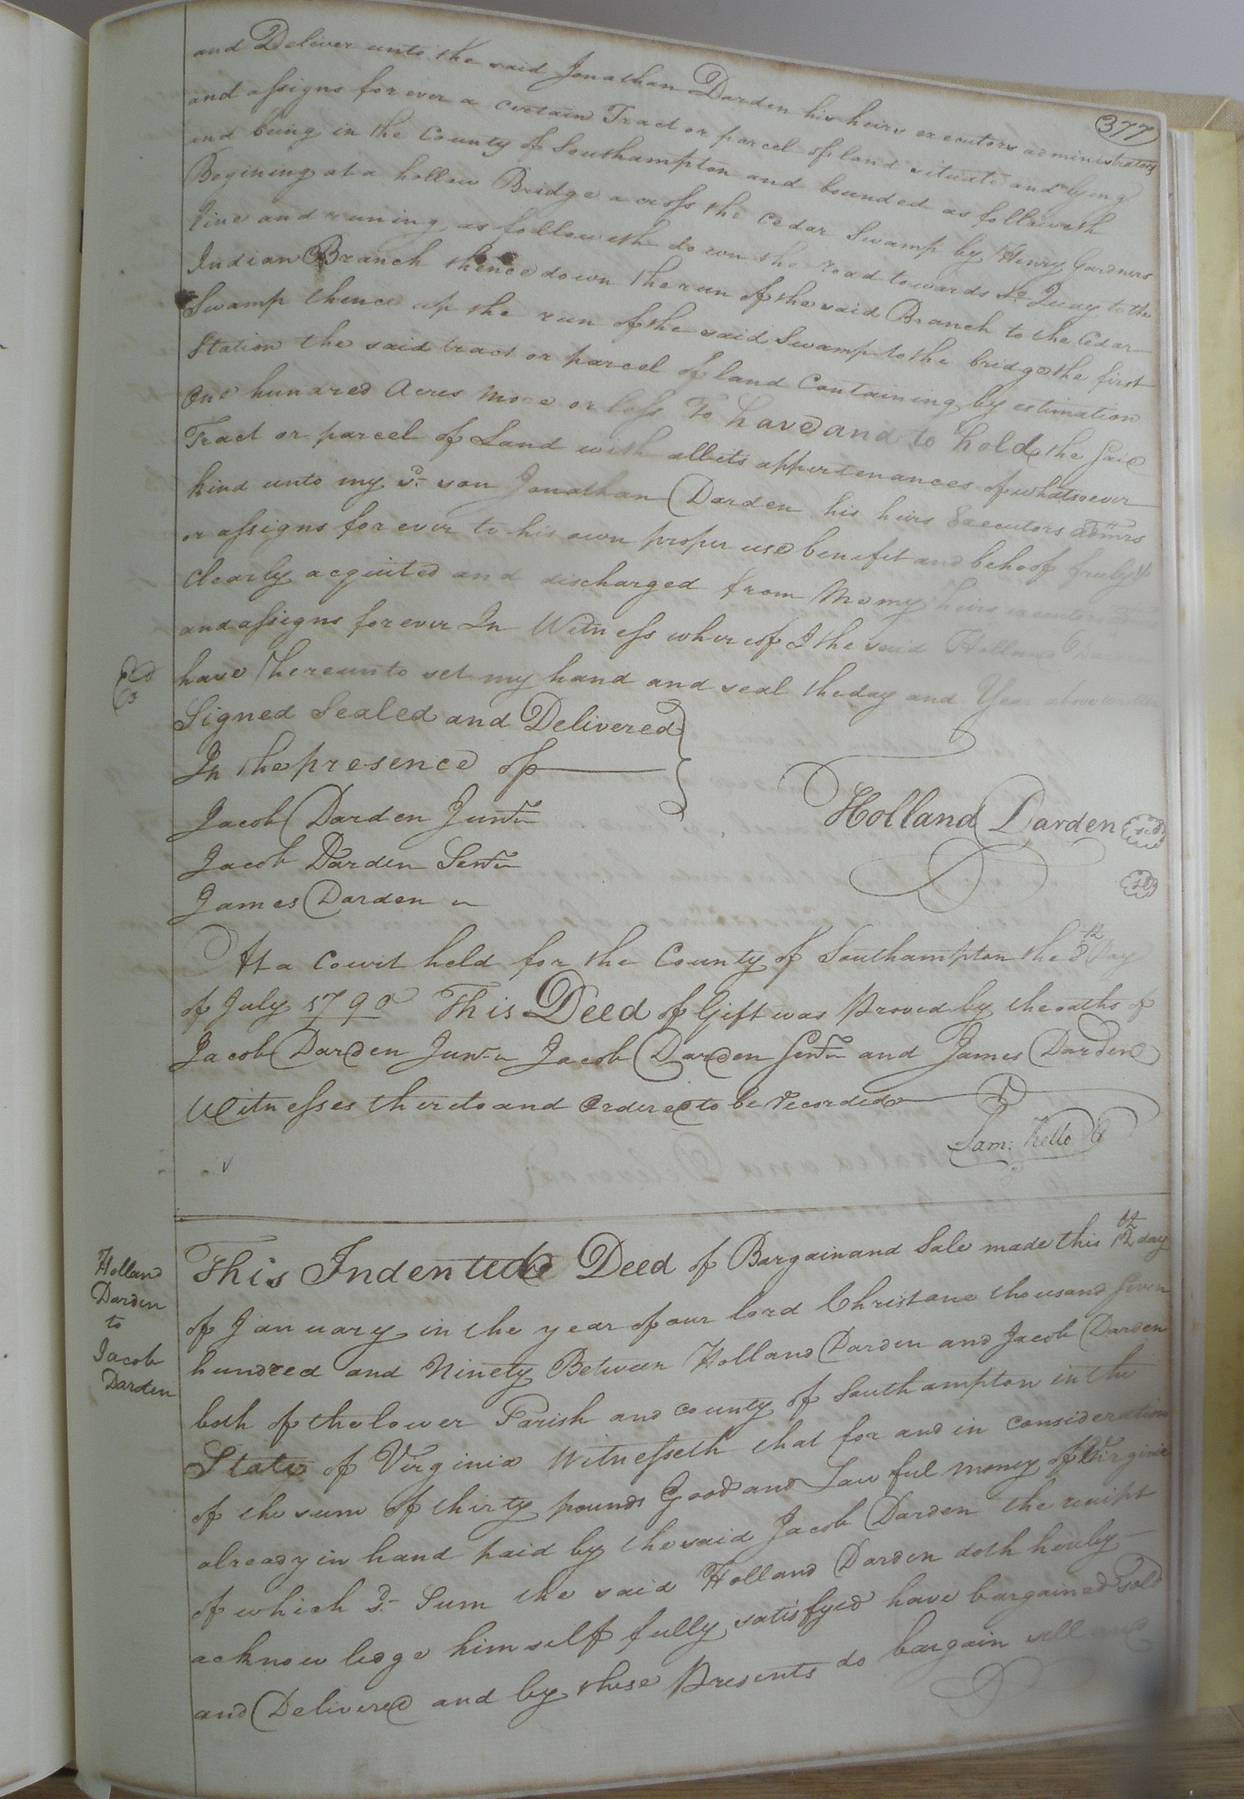 377
and Deliver unto the said Jonathan Darden his heirs executors administrators
and assigns forever a certain Tract or parcel of land situate and lying
and being in the County of Southampton and bounded as followeth
Begining at a hollow Bridge a cross the Cedar Swamp by Henry Gardners
line and runing as followeth down the road towards So. Quay to the
Indian Branch thence down the run of the said Branch to the Cedar
Swamp thence up the run of the said Swamp to the bridge the first
Station the said tract or parcel of land Containing by estimation
One hundred Acres more or less To have and to hold the said
Tract or parcel of Land with all its appurtenances of whatsoever
kind unto my sd. son Jonathan Darden his heirs Executors admrs
or assigns for ever to his own proper use benefit and behoof freely &
Clearly acquited and discharged from Me my heirs executors
and assigns forever In Witness whereof I the said Holland
have hereunto set my hand and seal the day and Year above written
Signed Sealed and Delivered
In the presence of
Jacob Darden Junr.
Holland Darden seal
Jacob Darden Senr.
James Darden
At a Court held for the County of Southampton the 8th Day
of July 1790 This Deed of Gift was Proved by the oaths of
Jacob Darden Junr. Jacob Darden Senr. and James Darden
Witnesses thereto and Ordered to be recorded
Sam: Kello
Holland
Darden
to
Jacob
Darden
This Indented Deed of Bargain and Sale made this 12th day
of January in the year of our lord Christ one thousand seven
hundred and Ninety Between Holland Darden and Jacob Darden
both of the lower Parish and county of Southampton in the
State of Virginia Witnesseth that for and in consideration
of the sum of thirty pounds Good and Lawful money of Virginia
already in hand paid by the said Jacob Darden the receipt
of which sd. Sum the said Holland Darden doth hereby
acknowledge himself fully satisfyed have bargained sold
and Delivered and by these Presents do bargain sell and